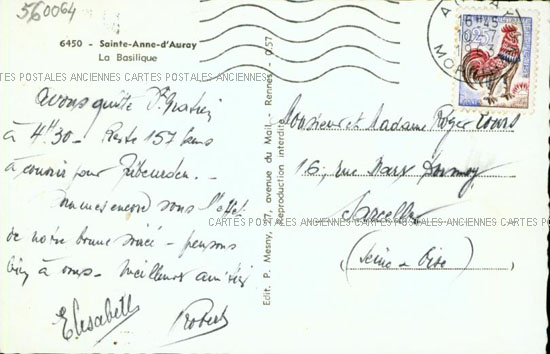 560064
6450 - Sainte-Anne-d'Auray
La Basilique
CARTES POSTALES ANCIENNES CARTES POSTALES ANCIENNES CARTES POSTALES ANCIENNES CARTES POSTALES
avons quitté St
à 4H30 - Reste 157 kms
à courir pour Trébeurden. -
Sommes encore sous l'effet
de notre bonne soirée - pensons
bien à vous - Meilleures amitiés
Elisabeth
Robert
Edit. P. Mesny, 27, avenue du Mail - Rennes - 0/57
Reproduction interdite
16H45
Monsieur et Madame Roger
16, rue Marx Dormoy
Sarcelles
CARTES POSTALES ANCIENNES CARTES POSTALES ANCIENNES CARTES POSTALES
(Seine et Oise)